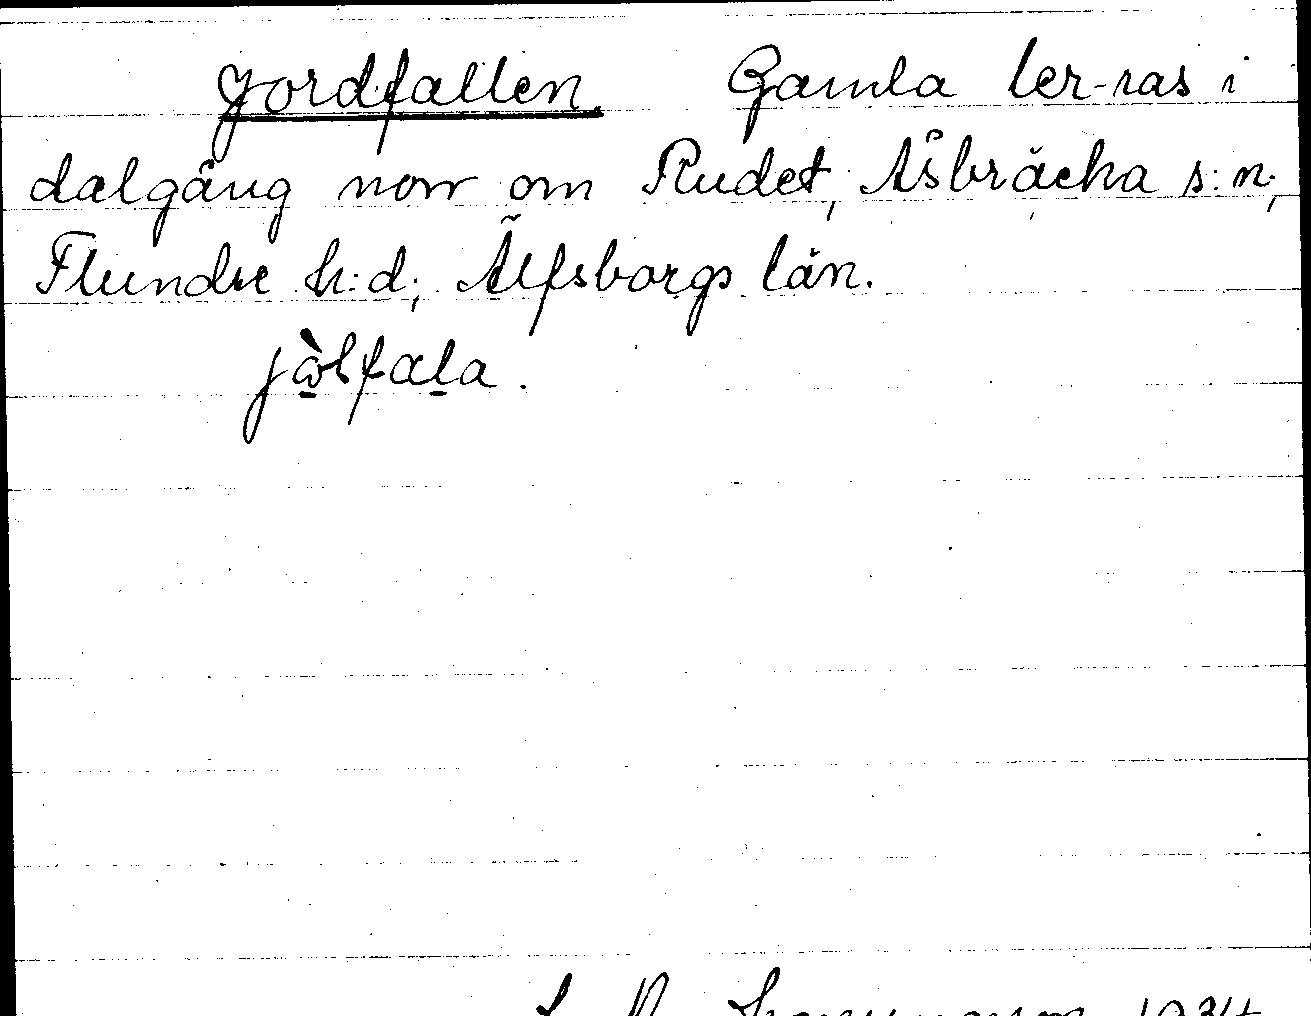 Jordfallen. Gamla ler-ras i
dalgång norr om Rudet, Åsbräcka s:n;
Flundre h:d; Älfsborgs län.
jòlfala.
1934